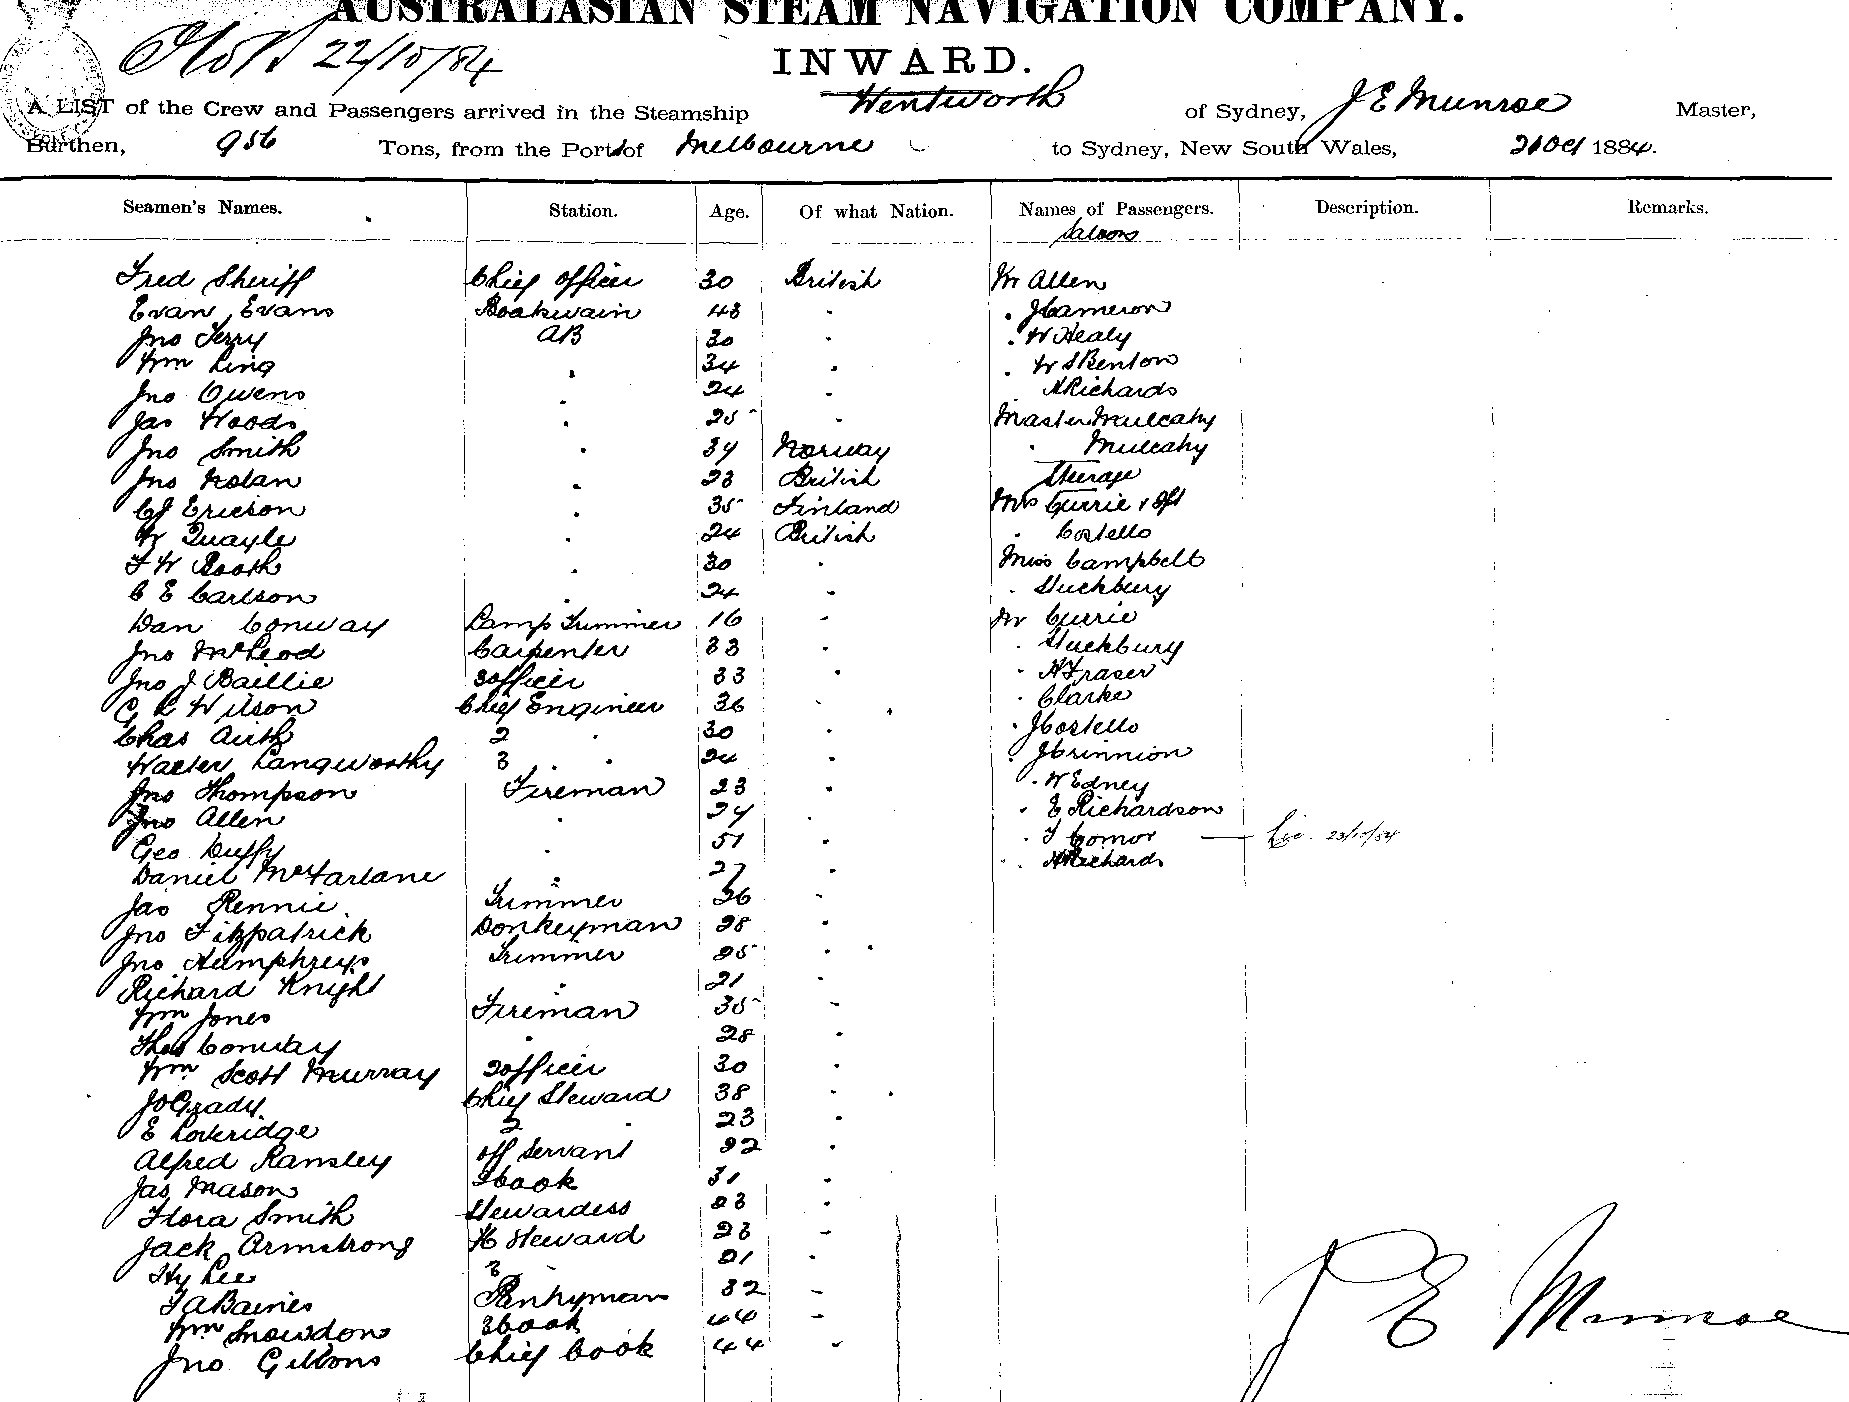 AUSTRALASIAN STEAM NAVIGATION COMPANY.
22/10/84
INWARD.
A LIST of the Crew and Passengers arrived in the Steamship Wentworth of Sydney, J E Munroe Master,
Burthen, 956 Tons, from the Port of Melbourne to Sydney, New South Wales, 21 Oct 1884.
Seamen's Names. Station. Age. Of what Nation. Names of Passengers. Description. Remarks.
Saloon
Fred Sheriff Chief Officer 30 British Mr Allen
Evan Evans Boatswain 48 . . J Cameron
Jno Terry AB 30 . . W Healy
Wm Ling . 34 . . W S Benton
Jno Owens . 24 . Richards
Jas Woods . 25 . Master Mulcahy
Jno Smith . 39 Norway . Mulcahy
Jno Nolan . 23 British Steerage
Ericson . 35 Finland Mrs Currie &
W Quayle . 24 British . Costello
F W Booth . 30 . Miss Campbell
C E Carlson . 24 . . Stuckbury
Dan Conway Lamp Trimmer 16 . Mr Currie
Jno McLeod Carpenter 33 . . Stuckbury
Jno J Baillie 3 officer 33 . . Fraser
Wilson Chief Engineer 36 . . Clarke
Chas Airth 2 . 30 . . J Costello
Walter Langworthy 3 . . 24 . . J Crinnion
Jno Thompson Fireman 23 . . W Edney
Jno Allen . 29 . . E Richardson
Geo Duffy . 51 . . Comor — 23/10/84
Daniel McFarlane . 27 . . Richards
Jas Rennie Trimmer 26 .
Jno Fitzpatrick Donkeyman 28 .
Jno Humphreys Trimmer 25 .
Richard Knight . 21 .
Wm Jones Fireman 35 -
Thos Conway . 28 .
Wm Scott Murray 2 officer 30 .
J O Grady Chief Steward 38 .
E Loveridge 2 . 23 .
Alfred Ransley off Servant 22 .
Jas Mason 2 Cook 31 .
Flora Smith Stewardess 23 -
Jack Armstrong Steward 23 -
Hy Lee 3 21 .
F A Baines Pantryman 32 -
Wm Snowdon 3 Cook 44 -
Jno Gibbons Chief Cook 44 -
J E Munroe